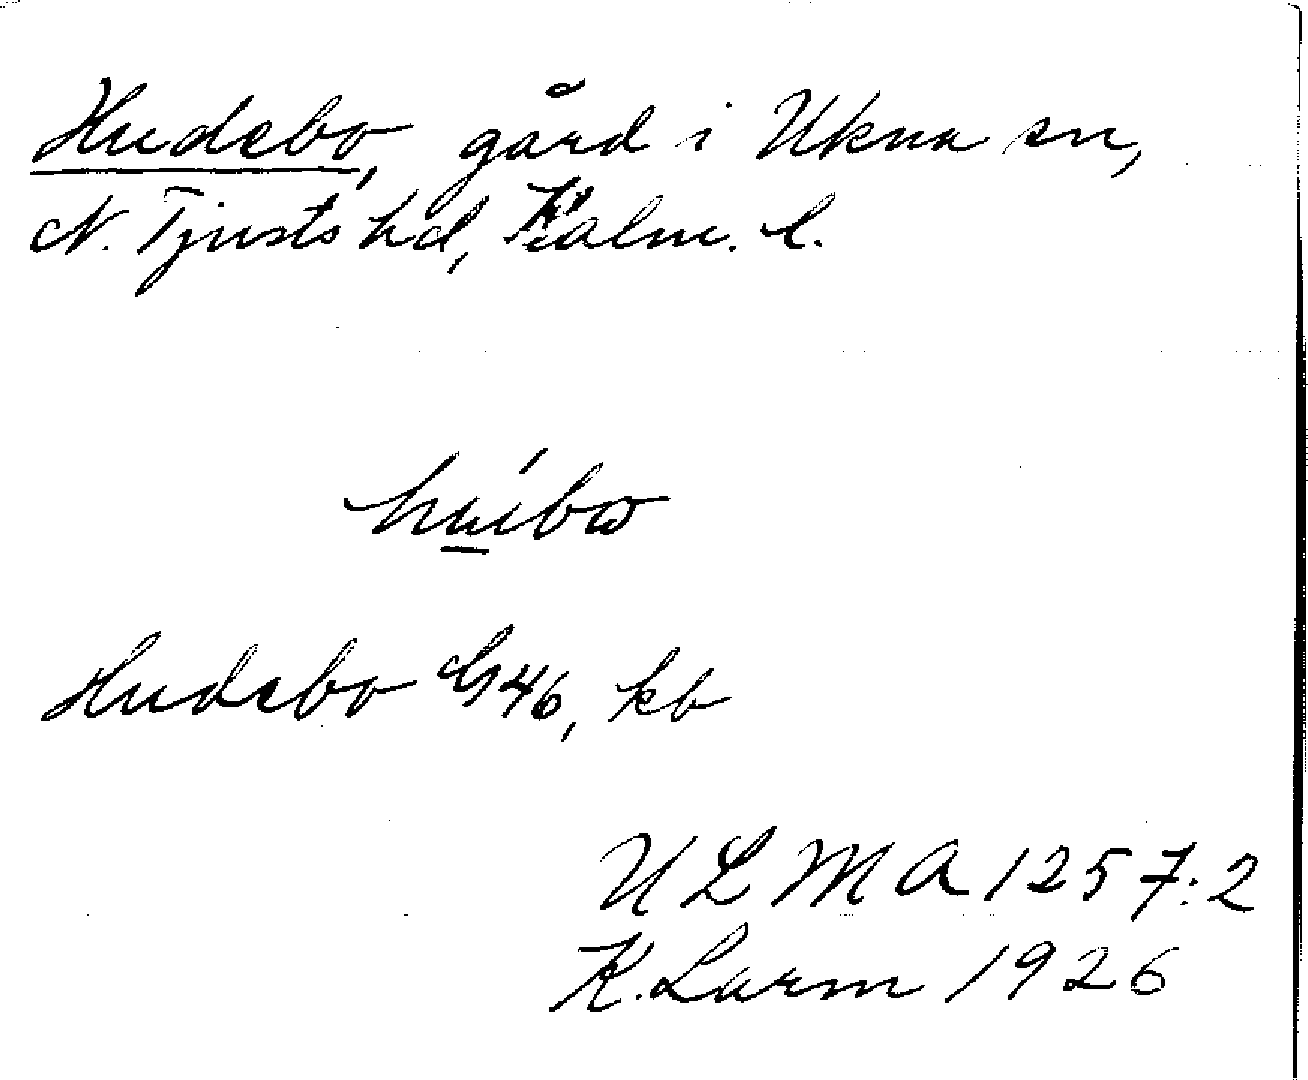 Hudebo, gård i Ukna sn,
N. Tjusts hd, Kalm. l.
huíbω
Hudebo G46, kb
ULMA 1257:2
K. Larm 1926